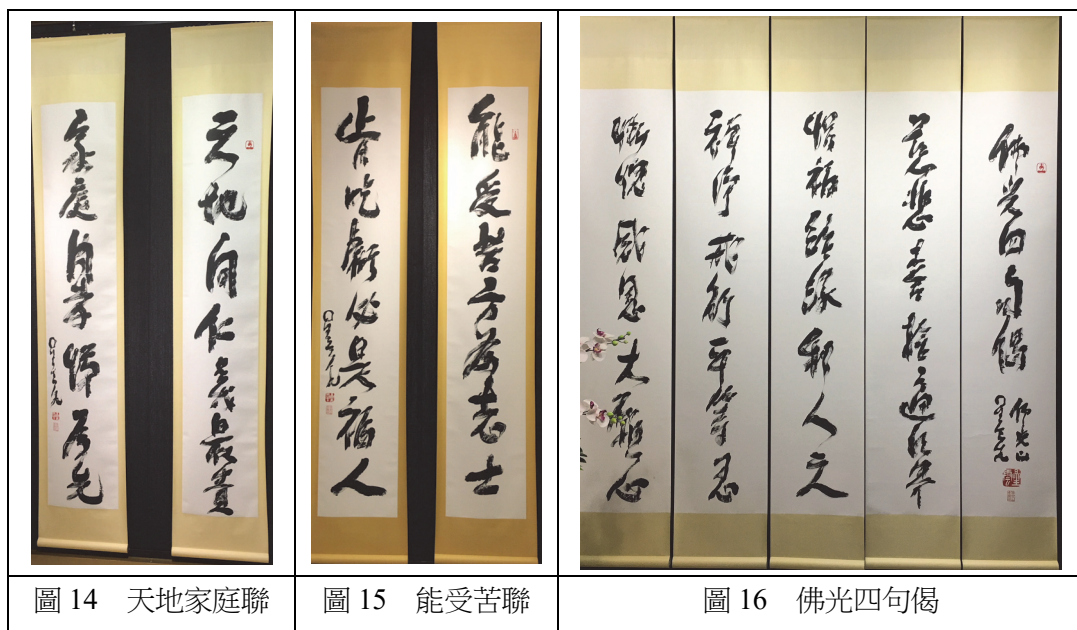 天地間仁義最貴
家庭孝悌為先
星雲
能受苦方為志士
肯吃虧必是福人
星雲
佛光四句偈
佛光山
星雲
慈悲喜捨遍法界
惜福結緣利人天
禪淨戒行平等忍
慚愧感恩大願心
圖 14 天地家庭聯
圖 15 能受苦聯
圖 16 佛光四句偈